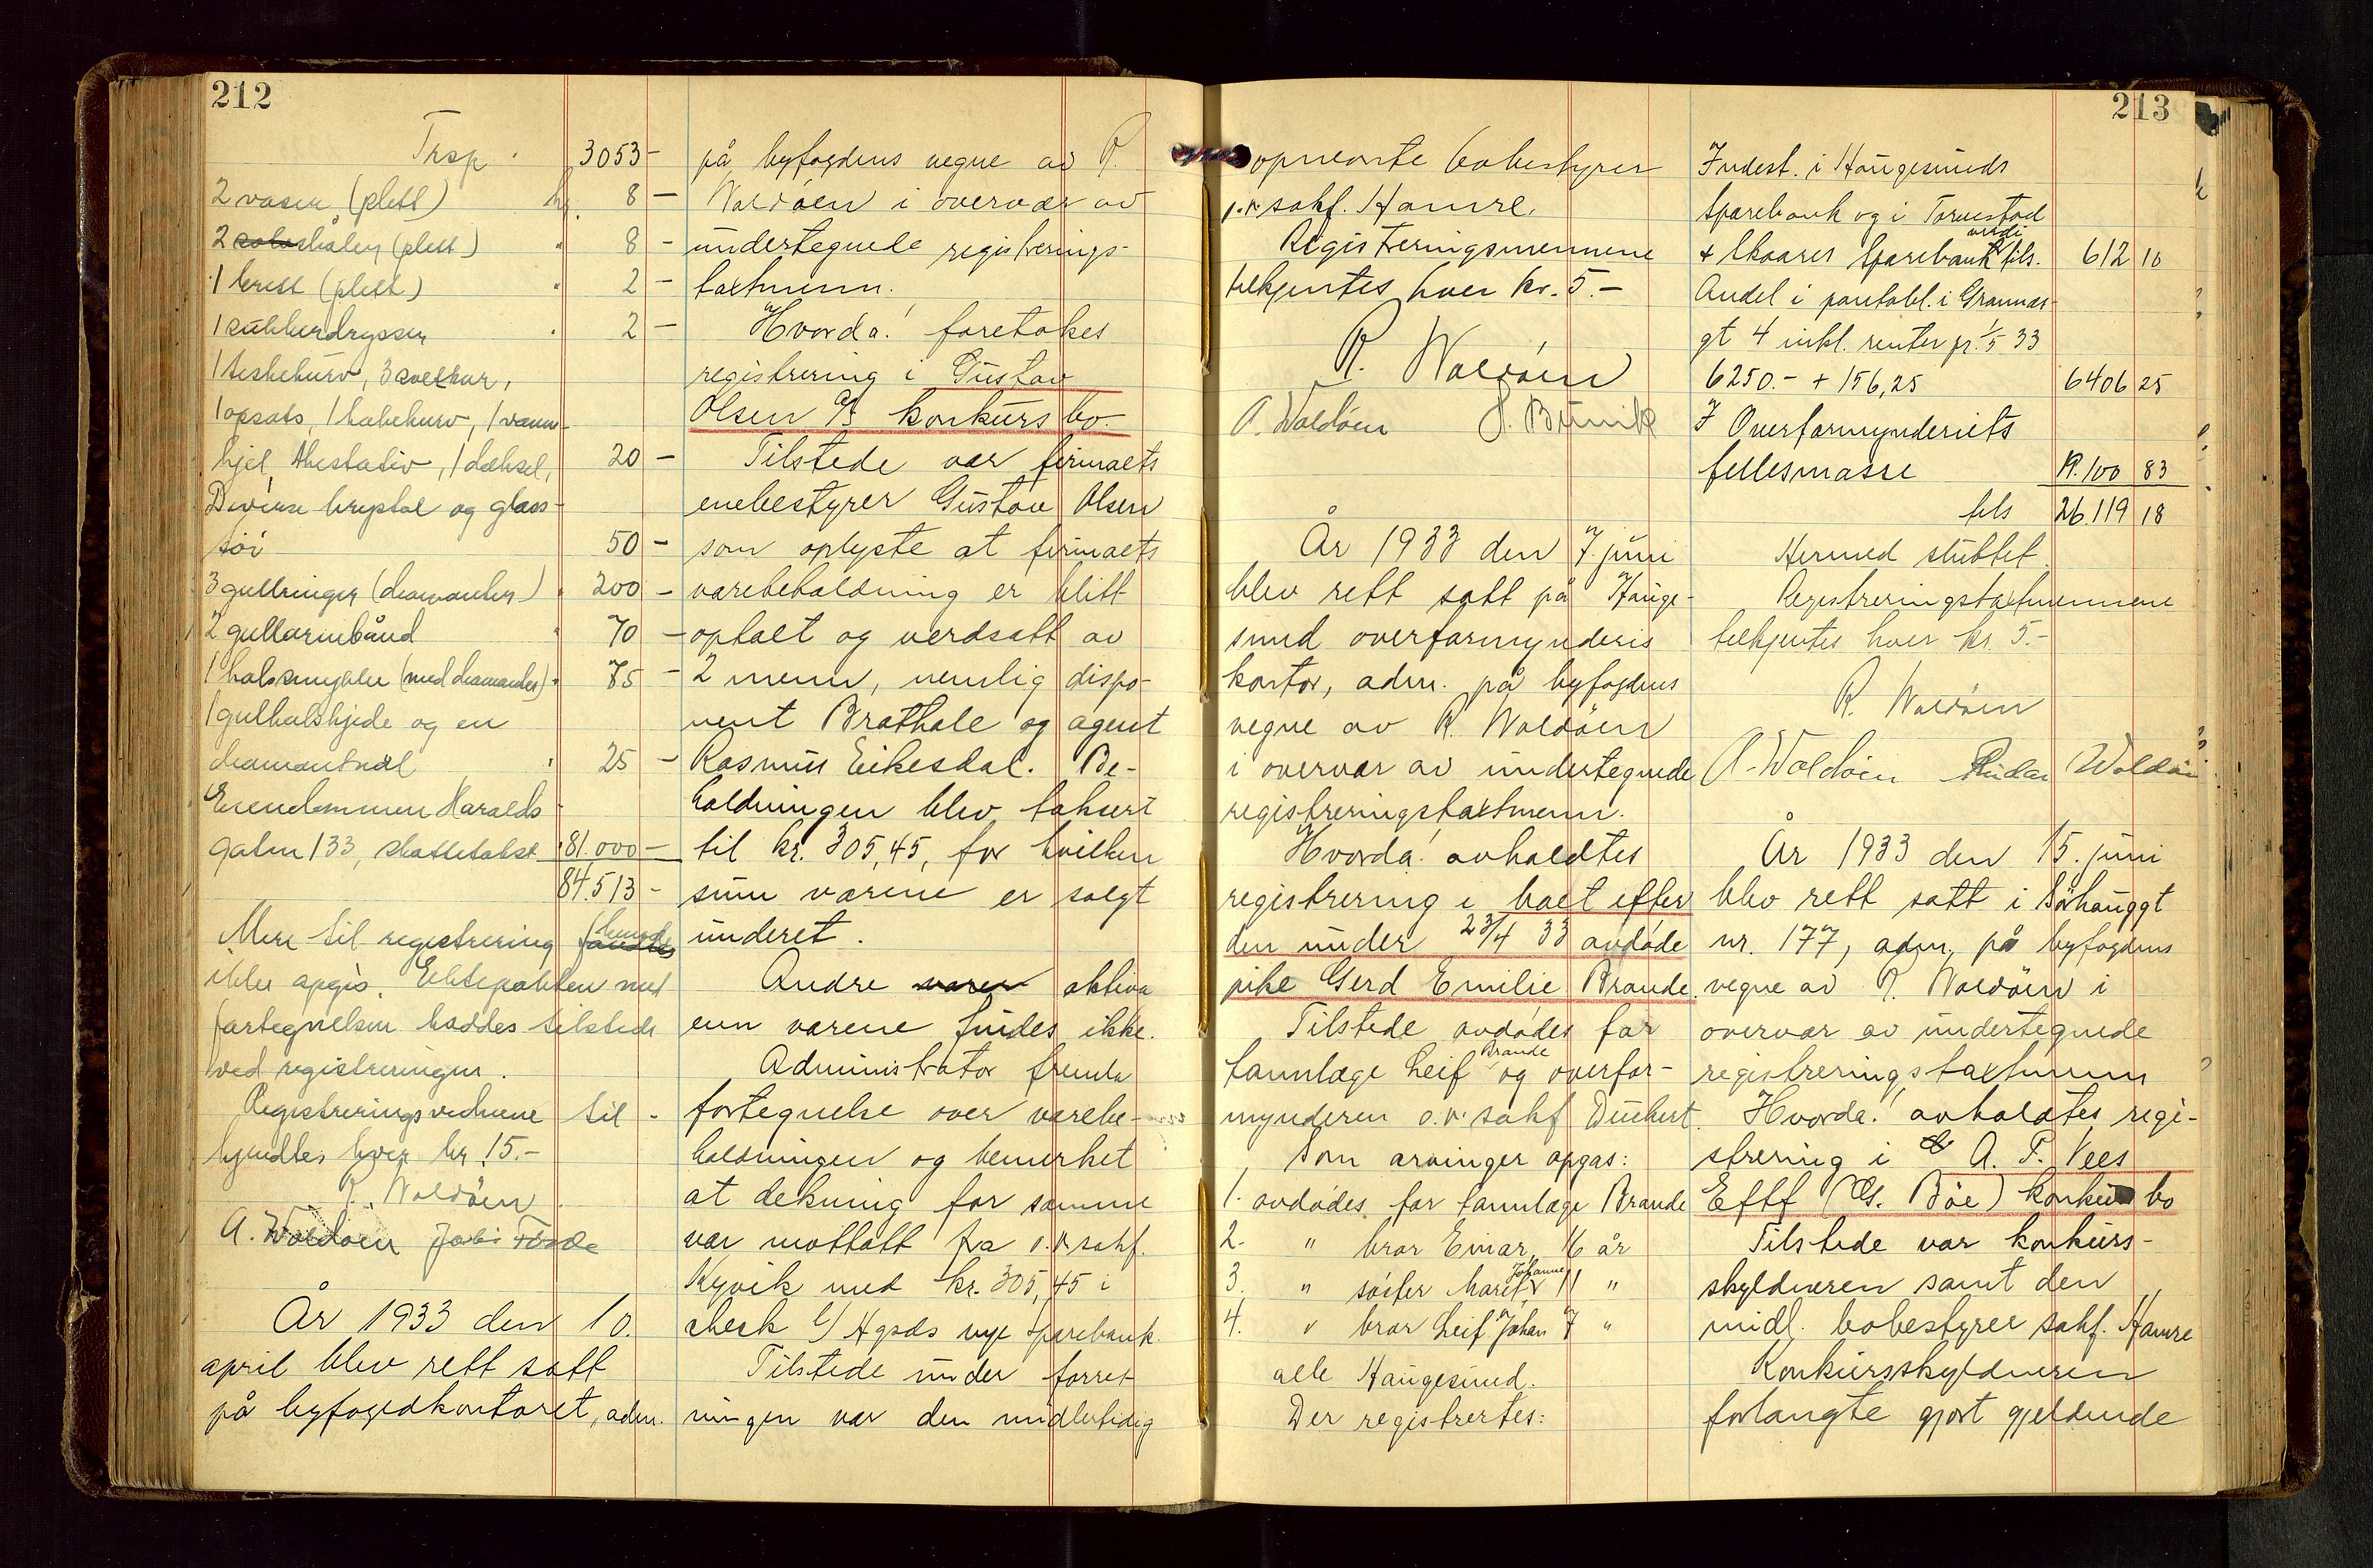 212
Trsp. 3053 -
2 vaser (plett) kr. 8 -
2 skåler (plett) " 8 -
1 brett (plett) " 2 -
1 sukkerdrysser " 2 -
1 teskekurv, 3
1 opsats, 1 kakekurv, 1 vann-
kjel, 20 -
Diverse krystal og glass-
töi 50 -
3 gullringer (diamanter) " 200 -
2 gullarmbånd " 70 -
1 halssmykke (med diamanter) " 75 -
1 gulhalskjede og en
diamantnål " 25 -
Eiendommen Haralds-
gaten 133, skattetakst 81.000 -
84.513 -
Mere til registrering
ikke opgis. Ektepakten med
fortegnelsen haddes tilstede
ved registreringen.
Registreringsvidnene til -
kjendtes hver kr. 15.-
R. Waldöen
A. Waldöen
År 1933 den 10.
april blev rett satt
på byfogedkontoret, adm.
på byfogdens vegne av R.
Waldöen i overvær av
undertegnede registrerings-
taxtmenn.
Hvorda! foretokes
registrering i Gustav
Olsen A/S konkursbo.
Tilstede var firmaets
enebestyrer Gustav Olsen
som oplyste at firmaets
varebeholdning er blitt
optalt og verdsatt av
2 menn, nemlig dispo-
nent Bratthole og agent
Rasmus Eikesdal. Be-
holdningen blev taksert
til kr. 305,45, for hvilken
sum varene er solgt
underet.
Andre varer aktiva
enn varene findes ikke.
Administrator fremla
fortegnelse over varebe-
holdningen og bemerket
at dekning for samme
var mottatt fra o.r.sakf.
Kyvik med kr. 305,45 i
check t/ Hgsds nye Sparebank.
Tilstede under forret-
ningen var den midlertidig
213
opnevnte bobestyrer
o.r.sakf. Hamre.
Registreringsmennene
tilkjentes hver kr. 5.-
R. Waldöen
A. Waldöen
År 1933 den 7. juni
blev rett satt på Hauge-
sund overformynderis
kontor, adm. på byfogdens
vegne av R. Waldöen
i overvær av undertegnede
registreringstaxtmenn.
Hvorda! avholdtes
registrering i boet efter
den under 23/4 33 avdøde
pike Gerd Emilie Brande.
Tilstede avdødes far
tannlæge Leif Brande og overfor-
mynderen o.r.sakf Duckert.
Som arvinger opgas:
1. avdødes far tannlæge Brande
2. " bror Einar, 16 år
3. " söster Marit Johanne 11 "
4. " bror Leif Johan 7 "
alle Haugesund.
Der registrertes:
Indest. i Haugesunds
Sparebank og i Torvestad
+ Skaares Sparebank verdi tils. 612 10
Andel i pantobl. i Grønnes-
gt 4 inkl. renter pr. 1/5 33
6250.- + 156,25 6406 25
I Overformynderiets
fellesmasse 19.100 83
tils 26.119 18
Hermed sluttet.
Registreringstaxtmennene
tilkjentes hver kr. 5.-
R. Waldöen
A. Waldöen Reidar Waldöen
År 1933 den 15. juni
blev rett satt i Sörhauggt
nr. 177, adm. på byfogdens
vegne av R. Waldöen i
overvær av undertegnede
registreringstaxtmenn
Hvorda! avholdtes regi-
strering i A. T. Vees
Eftf (G. Böe) konkursbo
Tilstede var konkurs-
skyldneren samt den
midl. bobestyrer sakf. Hamre
Konkursskyldneren
forlangte gjort gjeldende